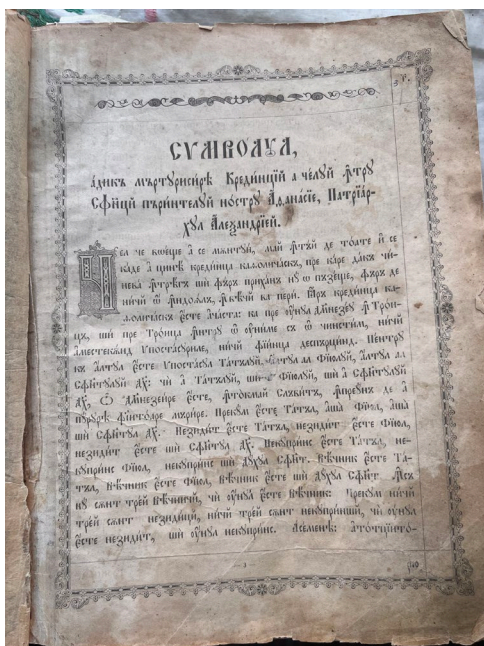 СѴМВОЛꙋЛ,
а́дикъ мъртꙋриси́рѣ Креди́нций а че́лꙋй ꙟ҆трꙋ
Сфи́нци пъри́нтелꙋй но́стрꙋ Аѳана́сїе, Патрїа́р-
хꙋл Алеѯандрі́ей.
че а се мѫнтꙋи́, май де тоате и се
ка́де а цинѣ̀ креди́нца каѳоличѣ́скъ, пре ка́ре да́къ чи-
нева ши фъръ приха́нъ нꙋ о пъзѣще, фъръ де
ни́чй ва пери́. ꙗръ креди́нца ка-
ѳоличѣ́скъ є҆́сте ача́ста: ка пре оу҆́нꙋл Дꙋмнезеꙋ Трои-
цъ, ши пре Тро́ица о со чинсти́м, ни́чй
а́местека́нд Ѵпоста́сꙋриле, ни́чй деспърци́нд. Пе́нтрꙋ
къ а́лтꙋл є҆́сте Ѵпоста́сꙋл Та́тълꙋй. а́лтꙋл ал Фі́юлꙋй, а́лтꙋл ал
Сфи́нтꙋлꙋй Дꙋ́х: чи а Та́тълꙋй, ши Фі́юлꙋй, ши а Сфи́нтꙋлꙋй
Дꙋ́х, є҆́сте, де а
пꙋ́рꙋрѣ мъри́ре. Преку́м є҆́сте Та́тъл, аша̀ Фі́юл, аша̀
ши Сфи́нтꙋл Дꙋ́х. Незиди́т є҆́сте Та́тъл, незиди́т є҆́сте Фі́юл,
незиди́т є҆́сте ши Сфи́нтꙋл Дꙋ́х. Некꙋпри́нс є҆́сте Та́тъл, не-
кꙋпри́нс Фі́юл, некꙋпри́нс ши Дꙋ́хꙋл Сфи́нт. Вѣ́чник є҆́сте Та-
тъл, вѣ́чник є҆́сте Фі́юл, вѣ́чник є҆́сте ши Дꙋ́хꙋл Сфи́нт. Ꙟсъ
нꙋ сѫнт трей вѣ́чничй, чи оу҆́нꙋл є҆́сте вѣ́чник: Преку́м ни́чй
трей сѫнт незиди́цй, ни́чй трей сѫнт некꙋпри́ншй, чи оу҆́нꙋл
є҆́сте незиди́т, ши оу҆́нꙋл некꙋпри́нс. Асе́менѣ: атотци́ито-